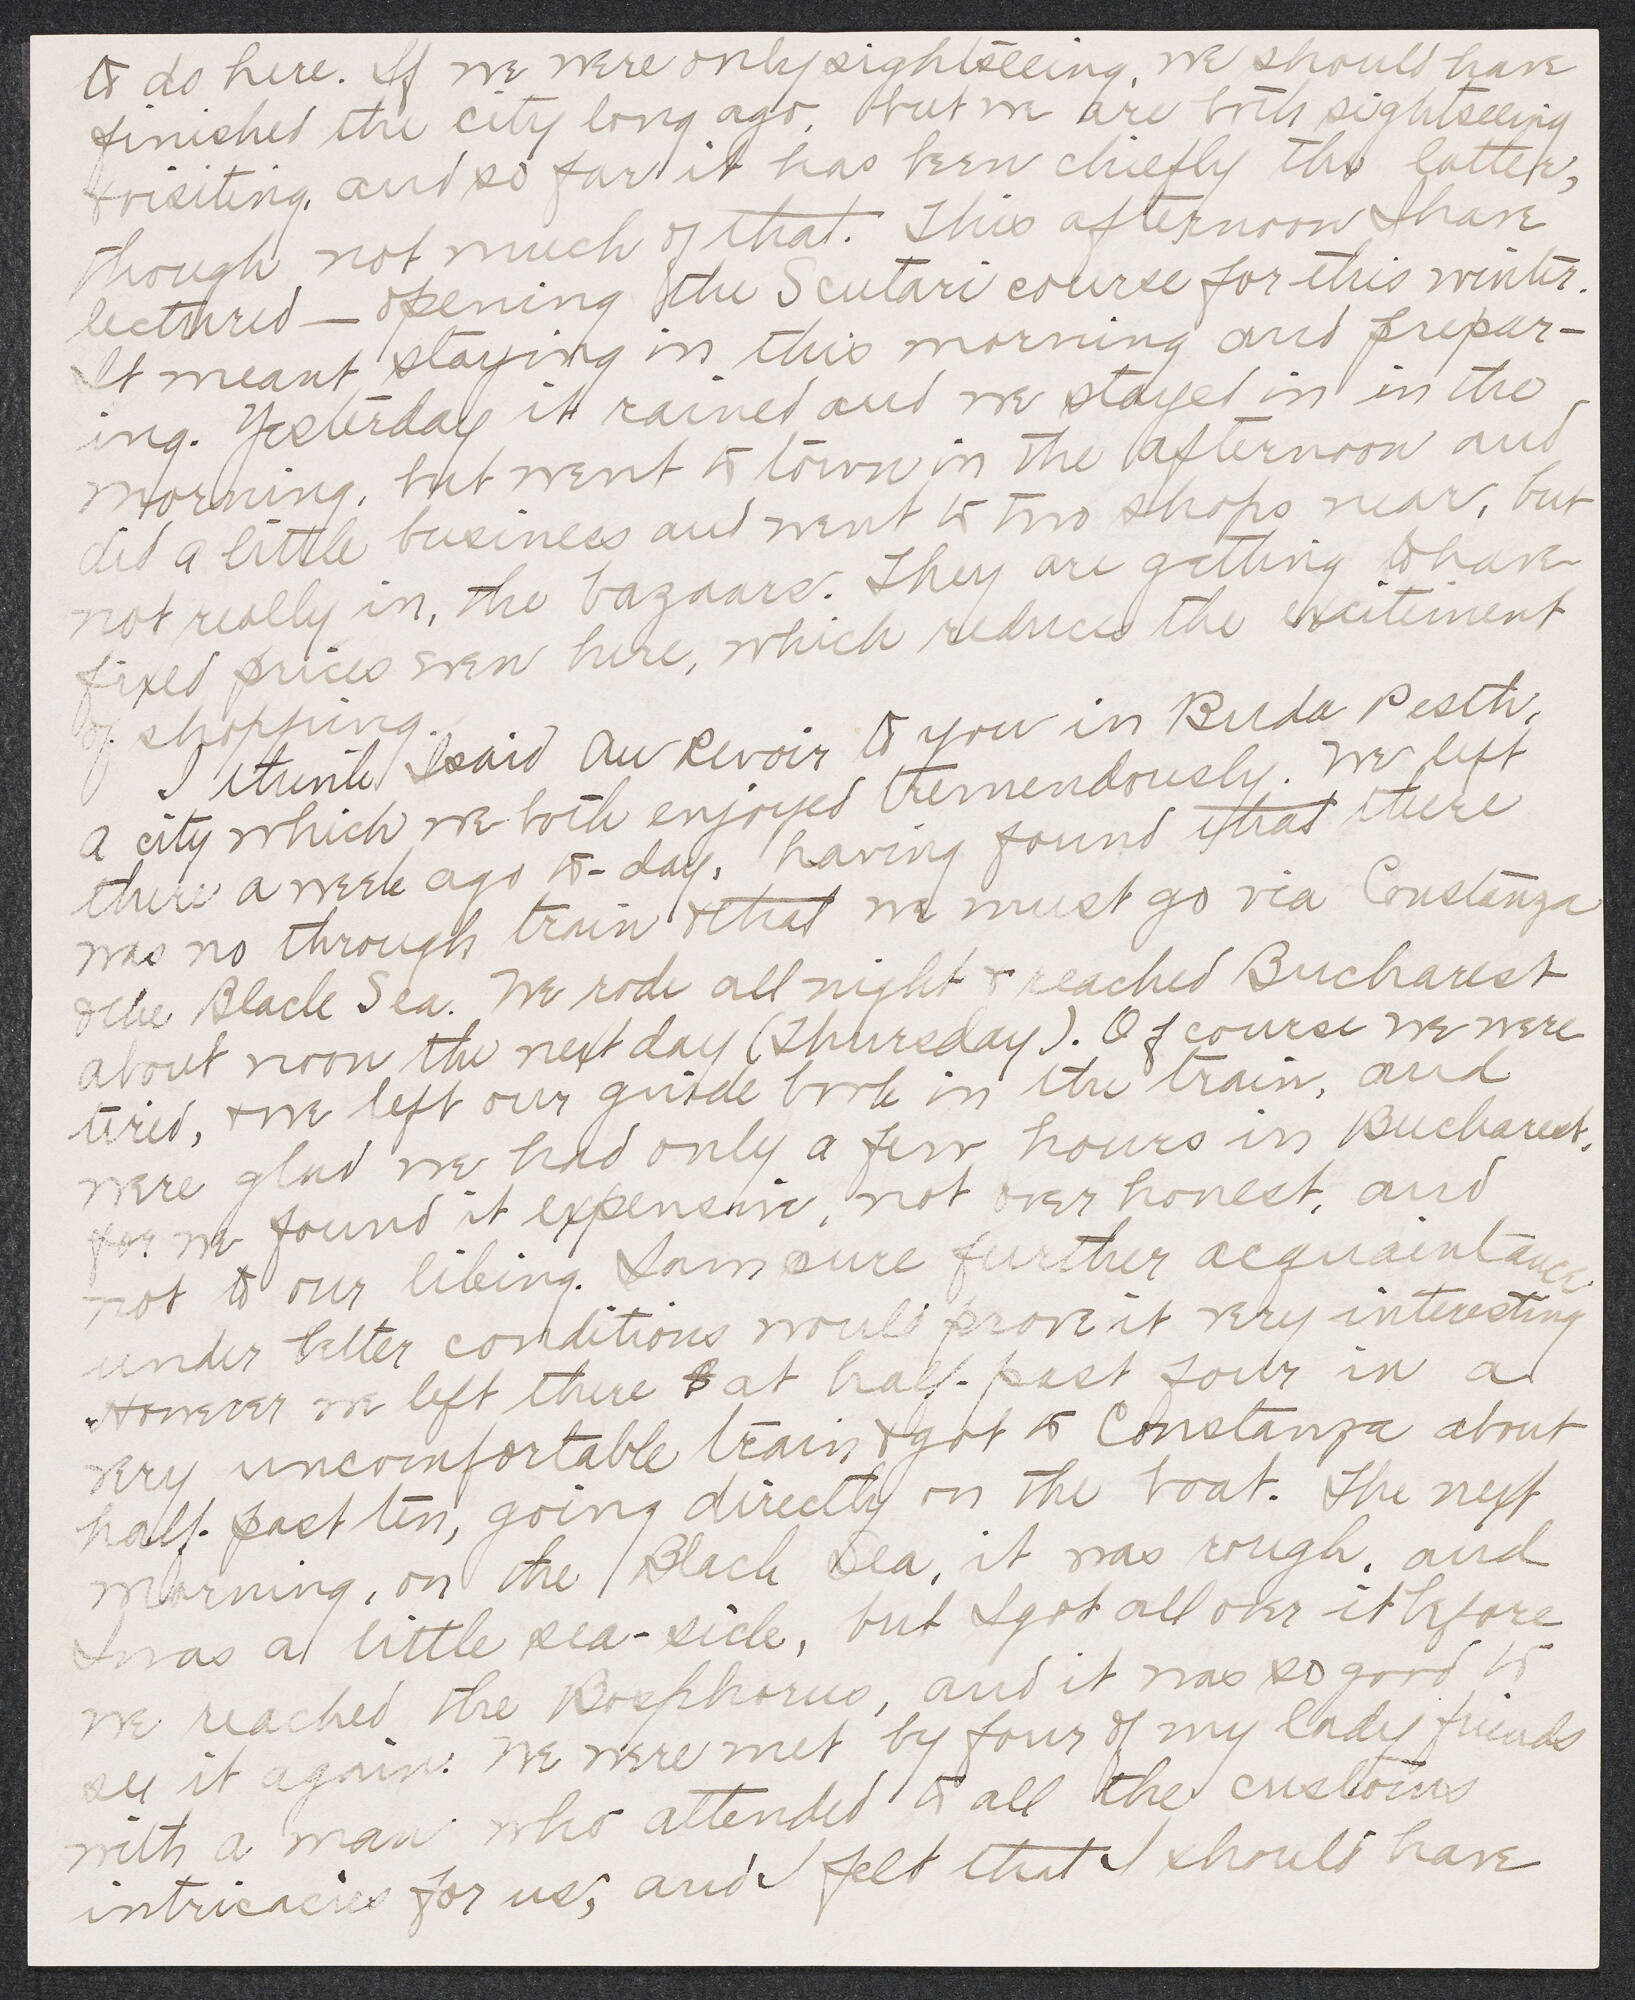 to do here. If we were only sightseeing, we should have
finished the city long ago, but we are both sightseeing
& visiting, and so far it has been chiefly the latter,
though not much of that. This afternoon I have
lectured — opening the Scutari course for this winter.
It meant staying in this morning and prepar-
ing. Yesterday it rained and we stayed in in the
morning, but went to town in the afternoon and
did a little business and went to two shops near, but
not really in, the bazaars. They are getting to have
fixed prices even here, which reduces the excitement
of shopping.
I think I said Au Revoir to you in Buda Pesth,
a city which we both enjoyed tremendously. We left
there a week ago to-day, having found that there
was no through train & that we must go via Constanza
& the Black Sea. We rode all night & reached Bucharest
about noon the next day (Thursday). Of course we were
tired, & we left our guide book in the train, and
were glad we had only a few hours in Bucharest,
for we found it expensive, not over honest, and
not to our liking. I am sure further acquaintance
under better conditions would prove it very interesting
However we left there at half-past four in a
very uncomfortable train & got to Constanza about
half-past ten, going directly on the boat. The next
morning, on the Black Sea, it was rough, and
I was a little sea-sick, but I got all over it before
we reached the Bosphorus, and it was so good to
see it again. We were met by four of my lady friends
with a man who attended to all the customs
intricacies for us, and I felt that I should have